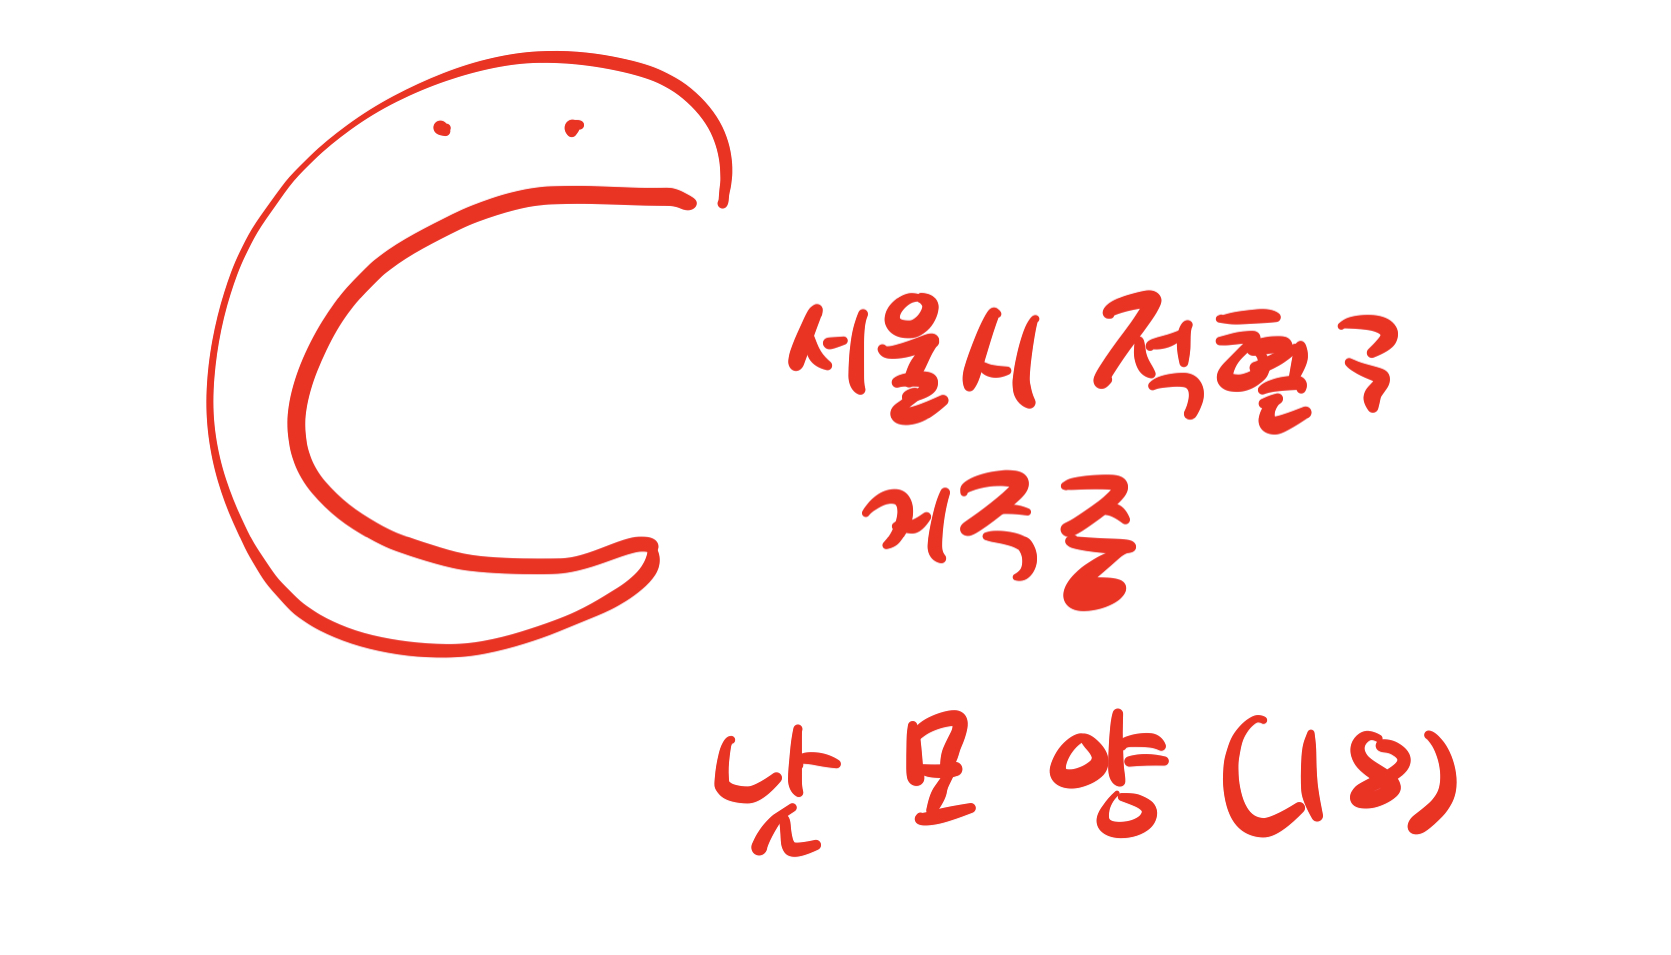 서울시 적혈구
거주중
낫 모 양 (18)